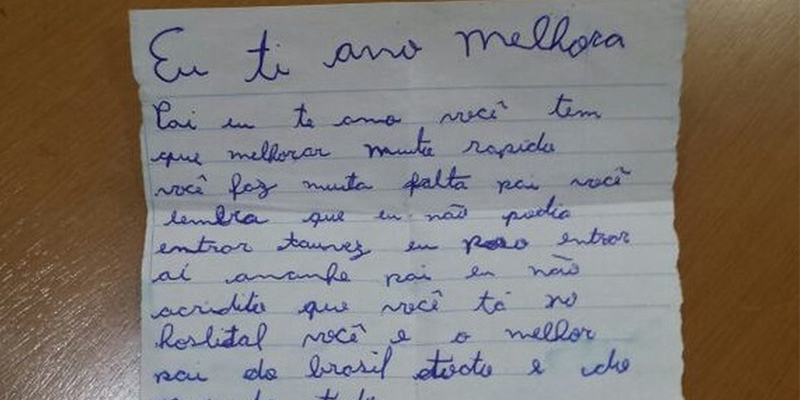 Eu ti amo melhora
Pai eu te amo você tem
que melhorar muito rapido
você faz muita falta pai você
lembra que eu não podia
entrar tauvez eu poso entrar
ai ananhe pai eu não
acridito que você tá no
hoslital você e o melhor
pai do brasil todo e do